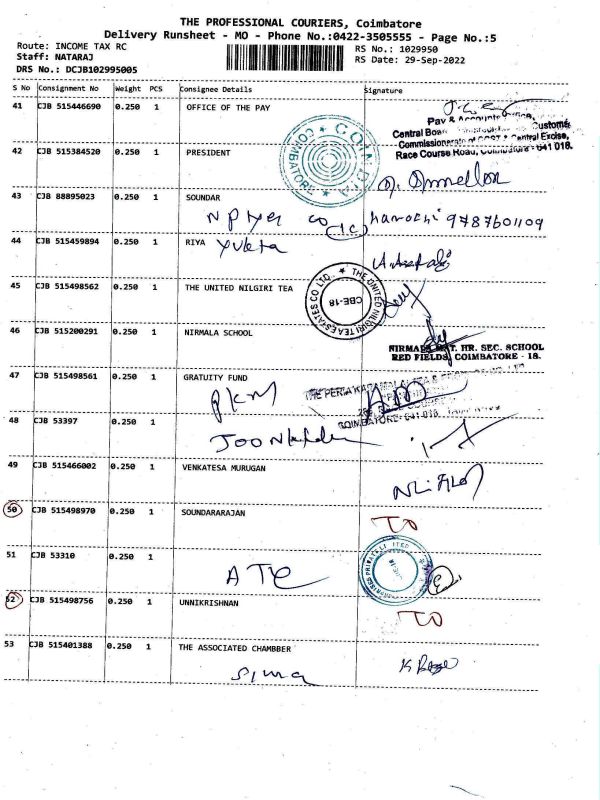 THE PROFESSIONAL COURIERS, Coimbatore
Delivery Runsheet - MO - Phone No.:0422-3505555 - Page No.:5
Route: INCOME TAX RC
RS No.: 1029950
Staff: NATARAJ
RS Date: 29-Sep-2022
DRS No.: DCJB102995005
S No Consignment No Weight PCS Consignee Details Signature
41 CJB 515446690 0.250 1 OFFICE OF THE PAY
Pay & Accounts Office,
Central Board Customs,
Commissionerate of CGST & Central Excise,
Race Course Road, Coimbatore - 641 018.
COIMBATORE
42 CJB 515384520 0.250 1 PRESIDENT
43 CJB 88895023 0.250 1 SOUNDAR
9787601109
44 CJB 515459894 0.250 1 RIYA
Yukta
45 CJB 515498562 0.250 1 THE UNITED NILGIRI TEA
THE UNITED NILGIRI TEA ESTATES CO LTD.,
CBE-18
46 CJB 515200291 0.250 1 NIRMALA SCHOOL
NIRMALA MAT. HR. SEC. SCHOOL
RED FIELDS, COIMBATORE - 18.
47 CJB 515498561 0.250 1 GRATUITY FUND
PKM
COIMBATORE - 641 018.
48 CJB 53397 0.250 1
49 CJB 515466002 0.250 1 VENKATESA MURUGAN
50 CJB 515498970 0.250 1 SOUNDARARAJAN
TO
51 CJB 53310 0.250 1
ATE
52 CJB 515498756 0.250 1 UNNIKRISHNAN
TO
53 CJB 515401388 0.250 1 THE ASSOCIATED CHAMBBER
Sima